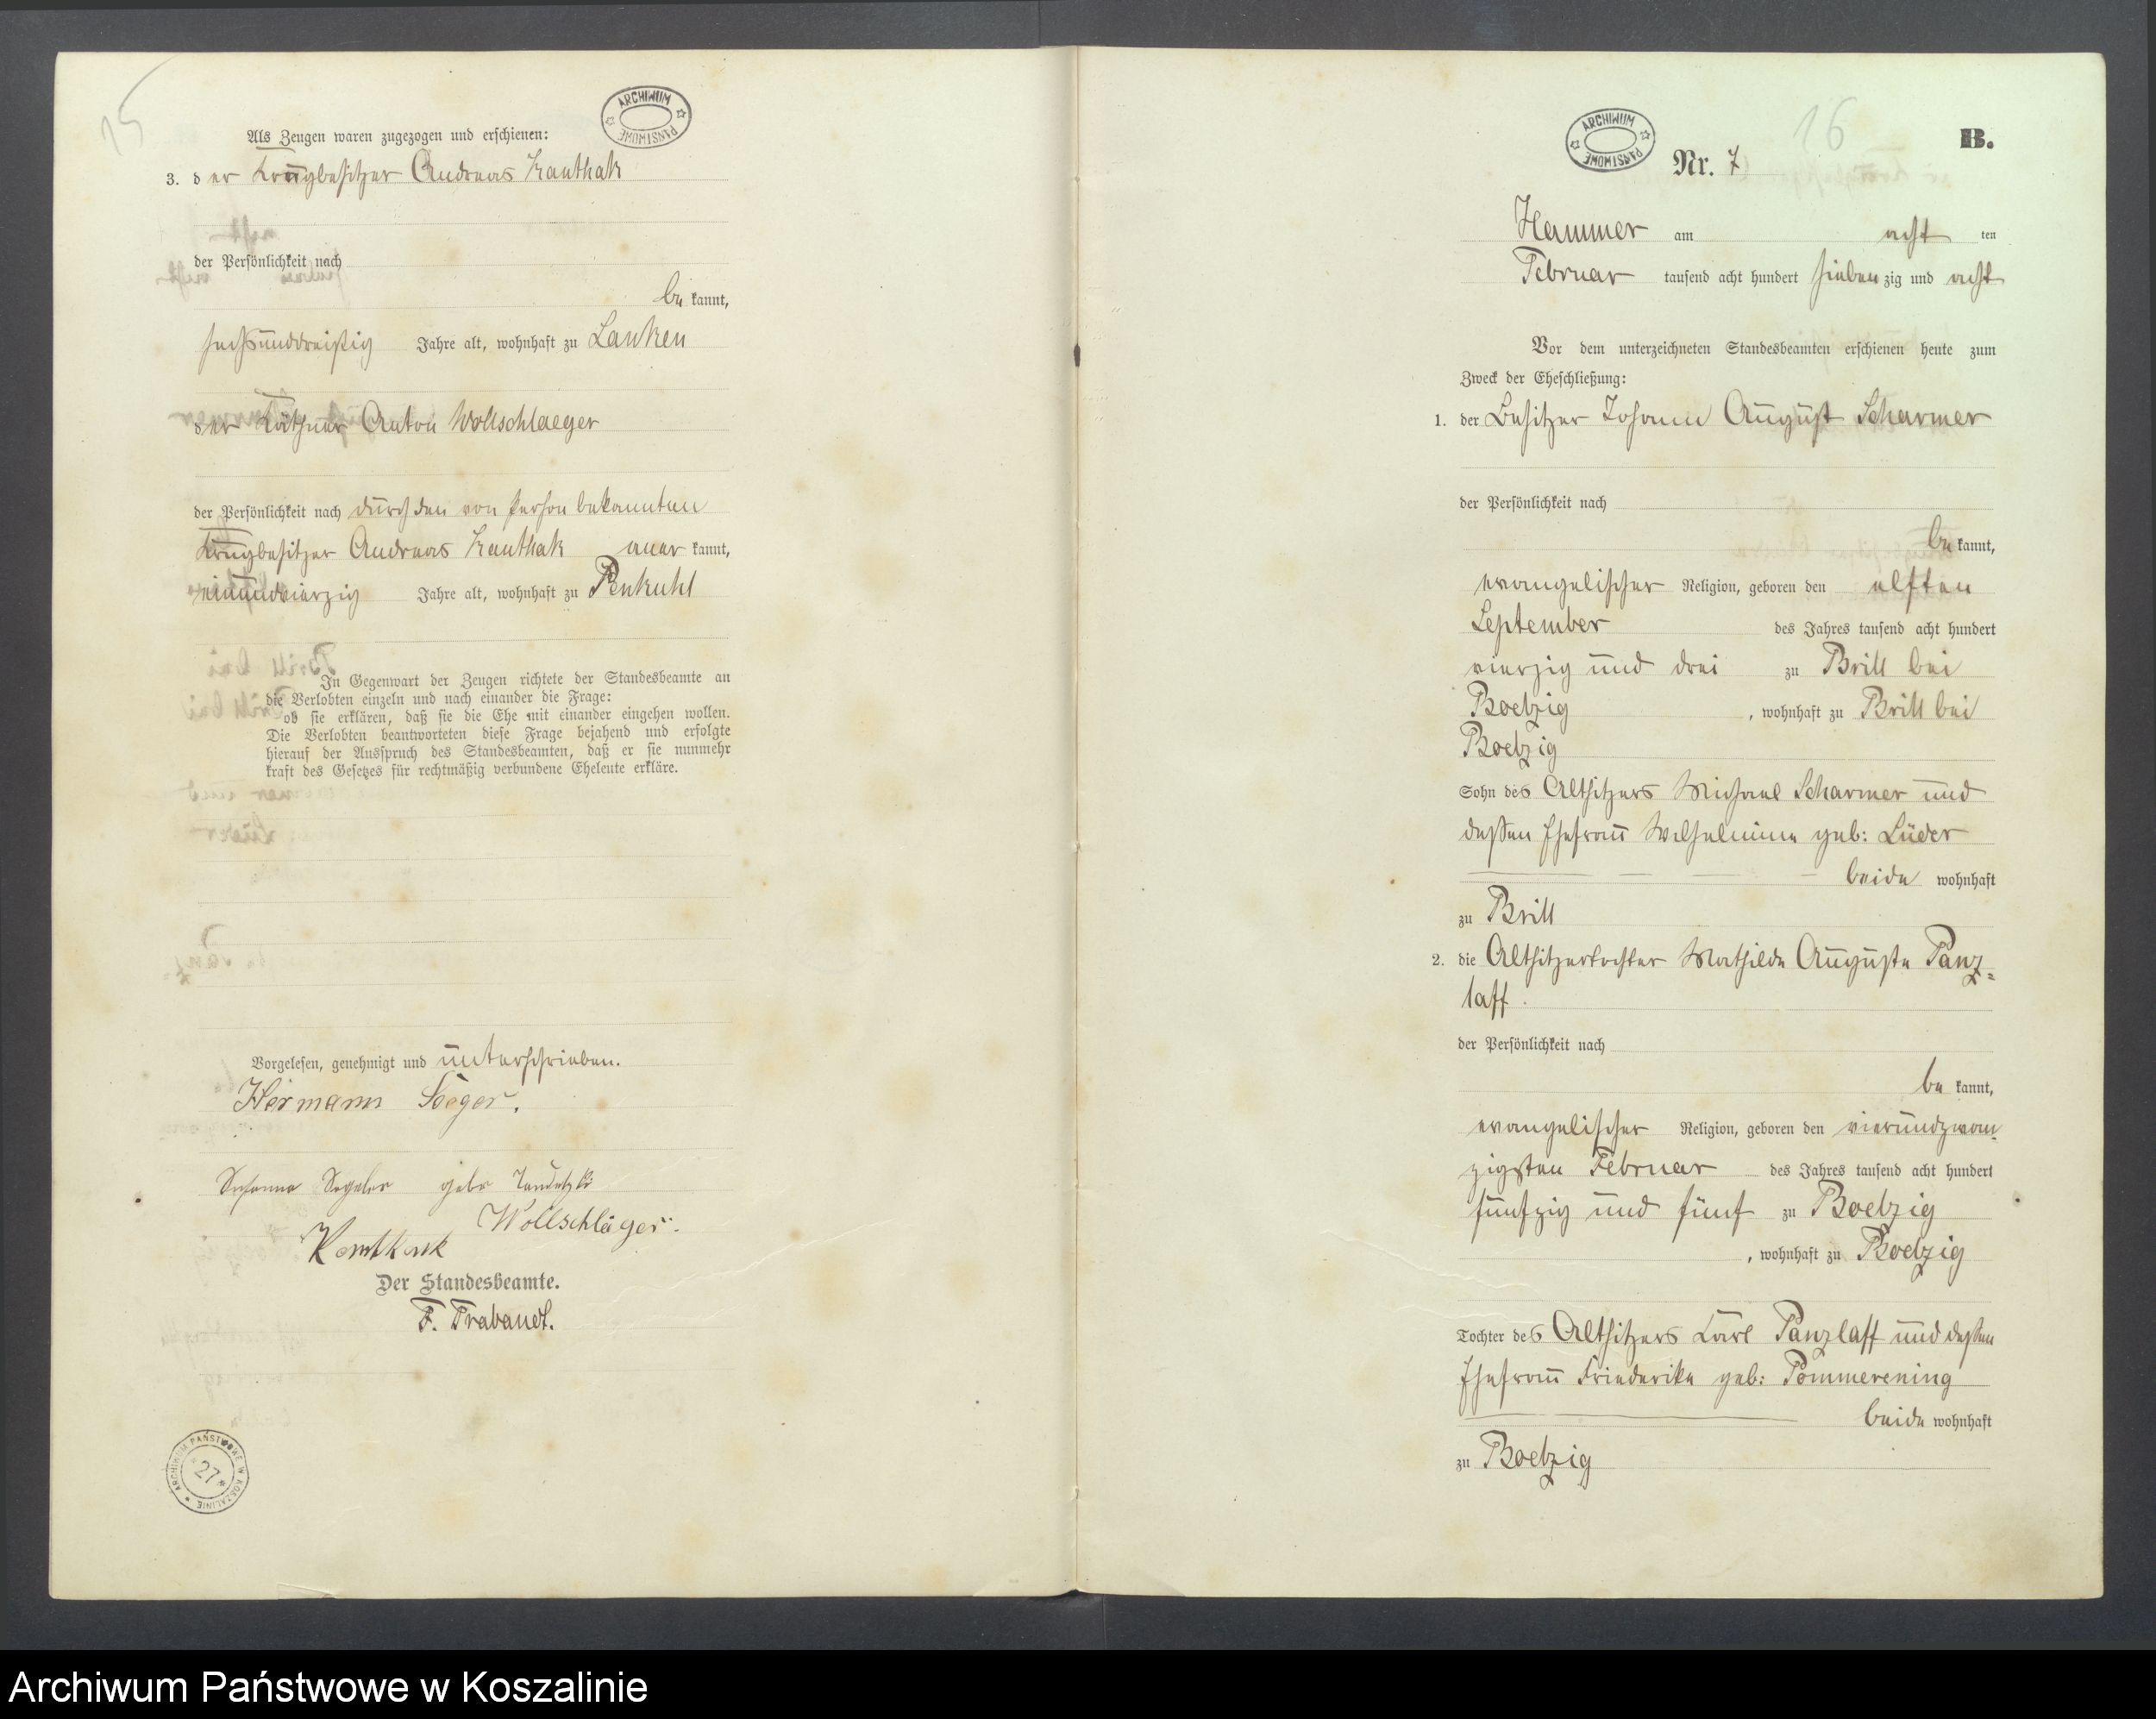 15
ARCHIWUM PAŃSTWOWE
Als Zeugen waren zugezogen und erschienen:
3. der Krugbesitzer Andreas Kanthak
der Persönlichkeit nach
be kannt,
sechsunddreißig Jahre alt, wohnhaft zu Lanken
4. der Käthner Anton Wollschlaeger
der Persönlichkeit nach durch den von Person bekannten
Krugbesitzer Andreas Kanthak aner kannt,
einundvierzig Jahre alt, wohnhaft zu Penkuhl
In Gegenwart der Zeugen richtete der Standesbeamte an
die Verlobten einzeln und nach einander die Frage:
ob sie erklären, daß sie die Ehe mit einander eingehen wollen.
Die Verlobten beantworteten diese Frage bejahend und erfolgte
hierauf der Ausspruch des Standesbeamten, daß er sie nunmehr
kraft des Gesetzes für rechtmäßig verbundene Eheleute erkläre.
Vorgelesen, genehmigt und unterschrieben.
Hermann Seeger.
gebr
Wollschläger.
Kantkak
Der Standesbeamte.
F. Trabandt.
ARCHIWUM PAŃSTWOWE W KOSZALINIE
27
16
B.
ARCHIWUM PAŃSTWOWE
Nr. 7
Hammer am acht ten
Februar tausend acht hundert sieben zig und acht
Vor dem unterzeichneten Standesbeamten erschienen heute zum
Zweck der Eheschließung:
1. der Besitzer Johann August Scharmer
der Persönlichkeit nach
be kannt,
evangelischer Religion, geboren den elften
September des Jahres tausend acht hundert
vierzig und drei zu Brill bei
Boetzig , wohnhaft zu Brill bei
Boetzig
Sohn des Altsitzers Michael Scharmer und
deßen Ehefrau Wilhelmine geb: Lüder
beide wohnhaft
zu Brill
2. die Altsitzertochter Mathilde Auguste Panz=
laff.
der Persönlichkeit nach
be kannt,
evangelischer Religion, geboren den vierundzwan
zigsten Februar des Jahres tausend acht hundert
fünfzig und fünf zu Boetzig
, wohnhaft zu Boetzig
Tochter des Altsitzers Carl Panzlaff und deßen
Ehefrau Friederike geb: Pommerening
beide wohnhaft
zu Boetzig
Archiwum Państwowe w Koszalinie